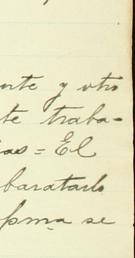 nte y otro
te traba-
as = El
baratarlo
se